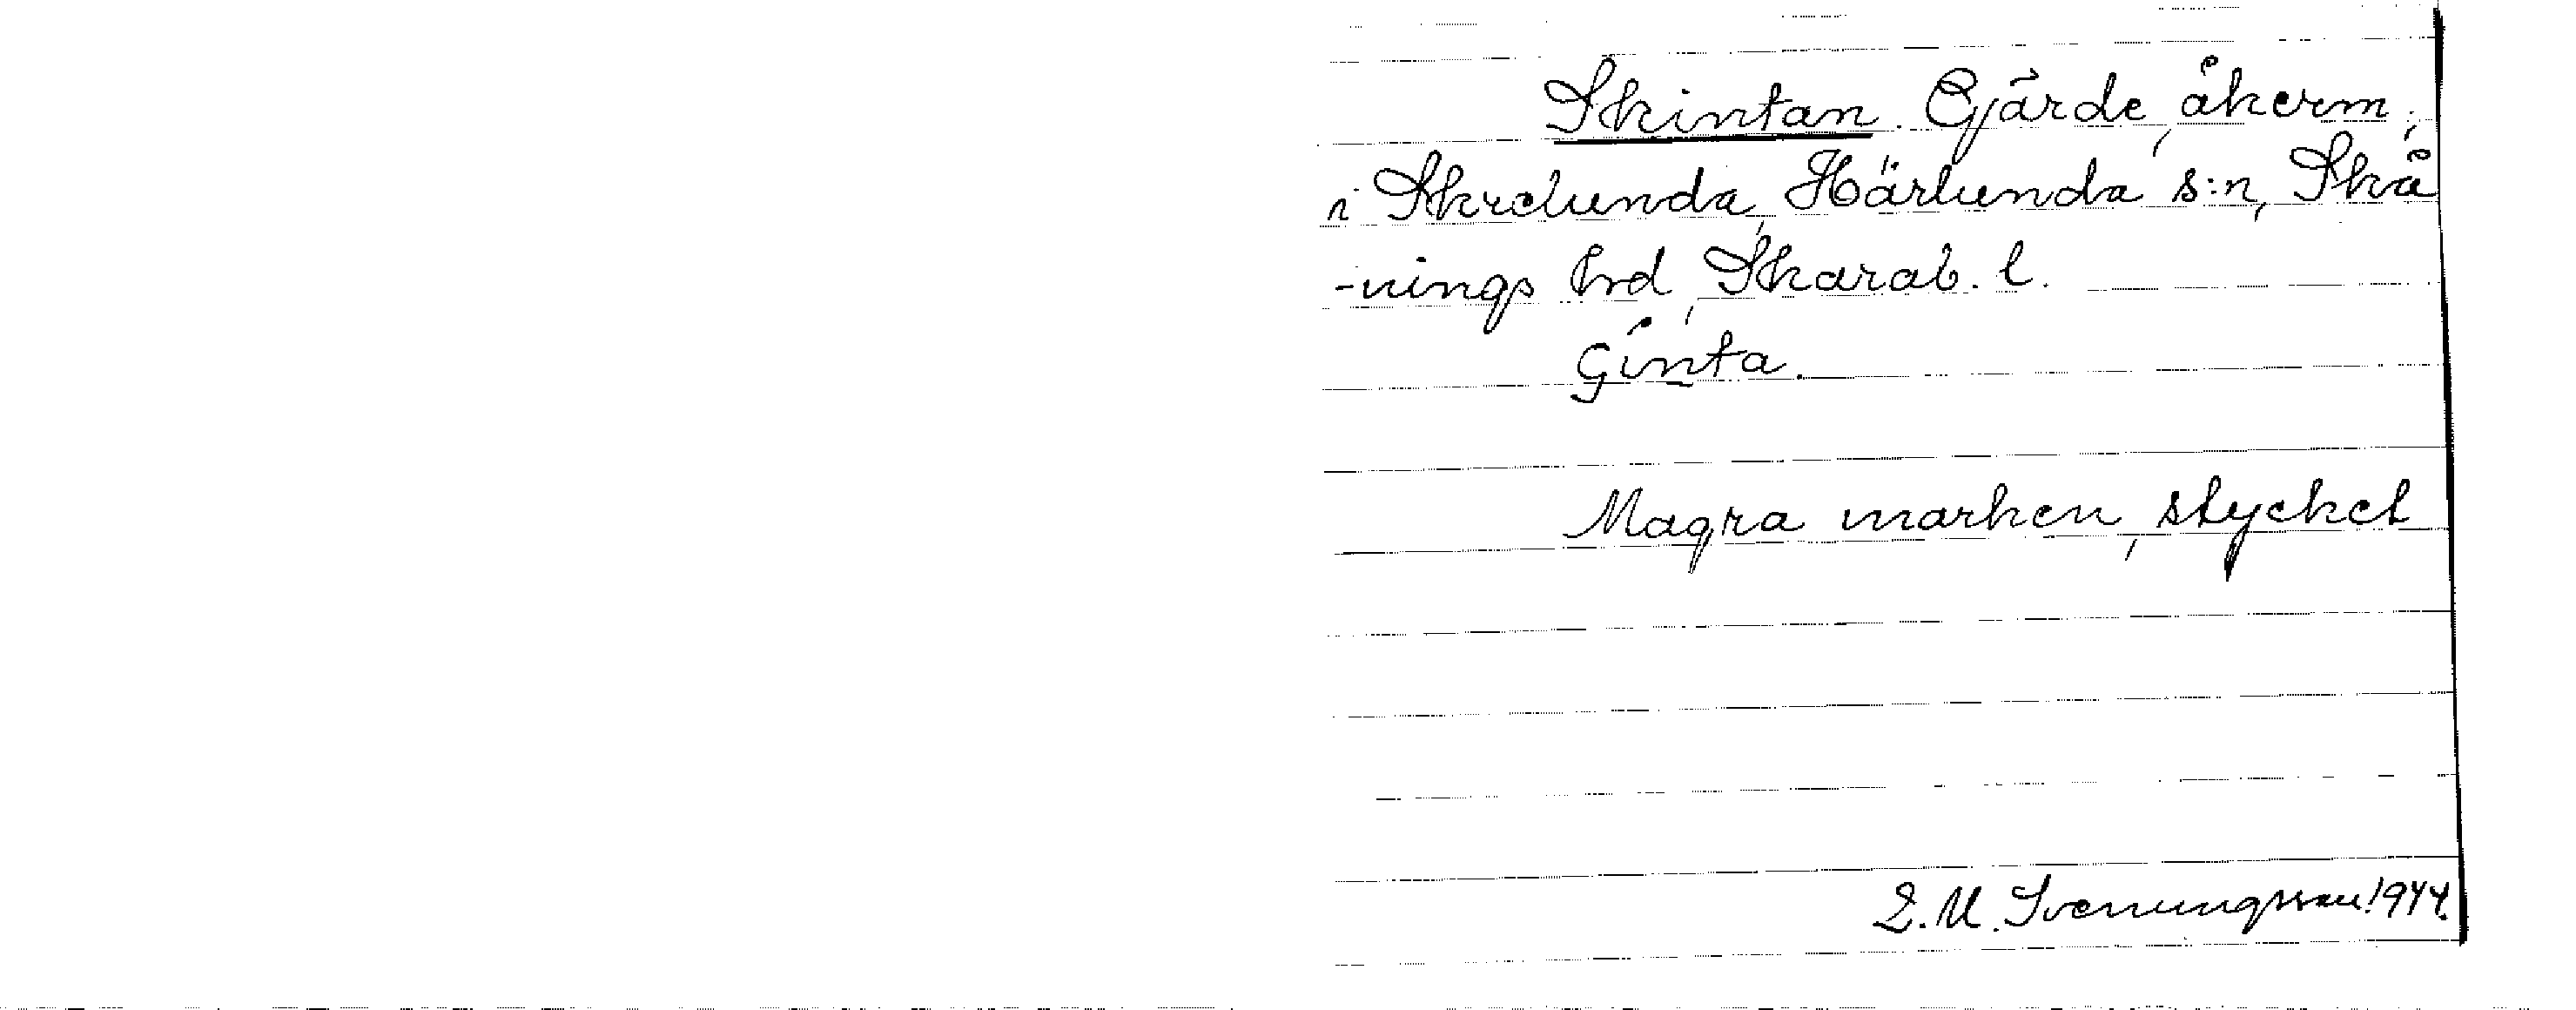 Skintan. Gjärde, åkerm.,
i Skrelunda, Härlunda s:n, Skå
-nings hrd, Skarab. l.
Magra marken, stycket
Svenungsson 1944.